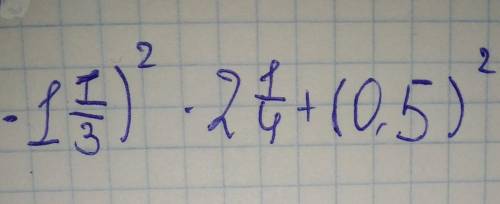 -1 1/3)² · 2 1/4 + (0,5)²